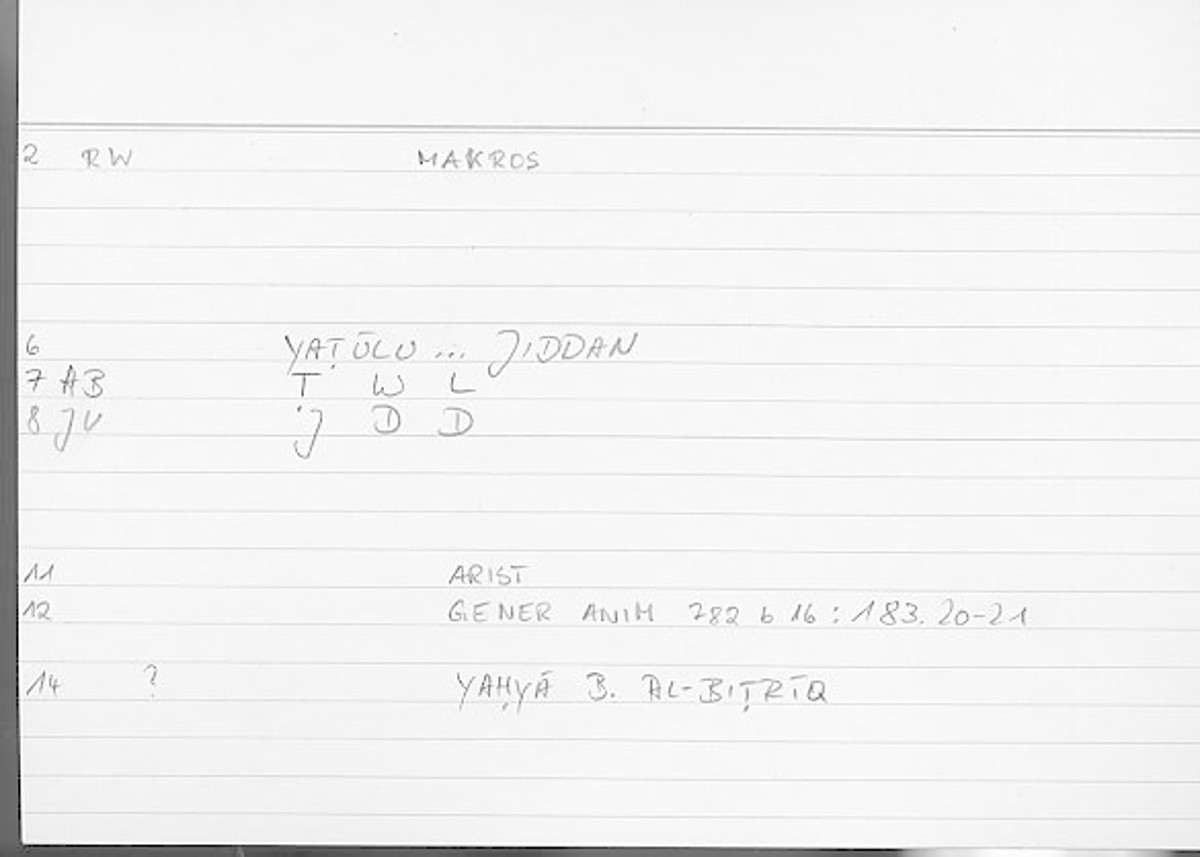 2 RW MAKROS
6 YAṬŪLU ... JIDDAN
7 AB Ṭ W L
8 JU J D D
11 ARIST
12 GENER ANIM 782 b 16 : 183.20-21
14 ? YAḤYĀ B. AL-BIṬRĪQ